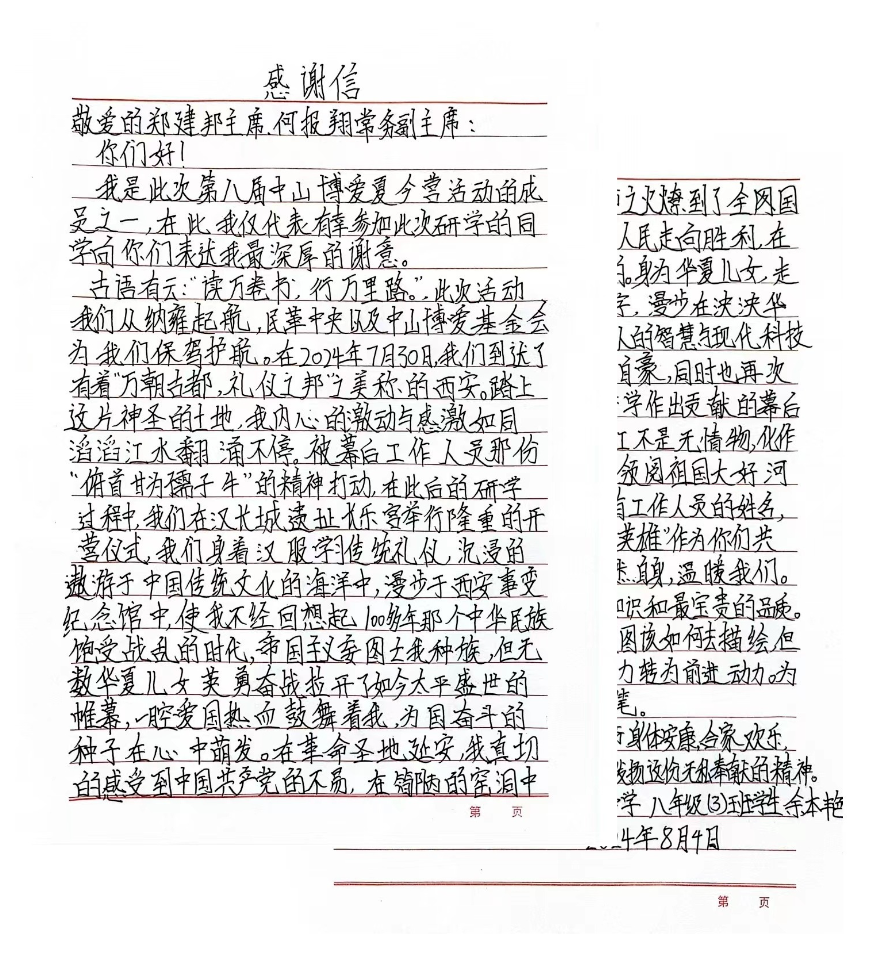 感谢信
敬爱的郑建邦主席、何报翔常务副主席：
你们好！
我是此次第八届中山博爱夏令营活动的成
员之一，在此，我仅代表有幸参加此次研学的同
学向你们表达我最深厚的谢意。
古语有云：“读万卷书，行万里路。”，此次活动
我们从纳雍起航，民革中央以及中山博爱基金会
为我们保驾护航。在2024年7月30日，我们到达了
有着“万朝古都，礼仪之邦”之美称的西安。踏上
这片神圣的土地，我内心的激动与感激如同
滔滔江水翻涌不停。被幕后工作人员那份
“俯首甘为孺子牛”的精神打动，在此后的研学
过程中，我们在汉长城遗址长乐宫举行隆重的开
营仪式，我们身着汉服学习传统礼仪，沉浸的
遨游于中国传统文化的海洋中，漫步于西安事变
纪念馆中，使我不经回想起100多年那个中华民族
饱受战乱的时代，帝国主义妄图亡我种族，但无
数华夏儿女英勇奋战拉开了如今太平盛世的
帷幕，一腔爱国热血鼓舞着我，为国奋斗的
种子在心中萌发。在革命圣地延安，我真切
的感受到中国共产党的不易，在简陋的窑洞中
第 页
之火燎到了全网国
人民走向胜利，在
。身为华夏儿女，走
字，漫步在泱泱华
人的智慧与现代科技
自豪，同时也再次
学作出贡献的幕后
工不是无情物，化作
领阅祖国大好河
工作人员的姓名，
英雄”作为你们共
自身，温暖我们。
识和最宝贵的品质。
图该如何去描绘，但
力转为前进动力。为
笔。
身体安康，合家欢乐，
发扬这份无私奉献的精神。
学 八年级(3)班学生 余本艳
24年8月4日
第 页